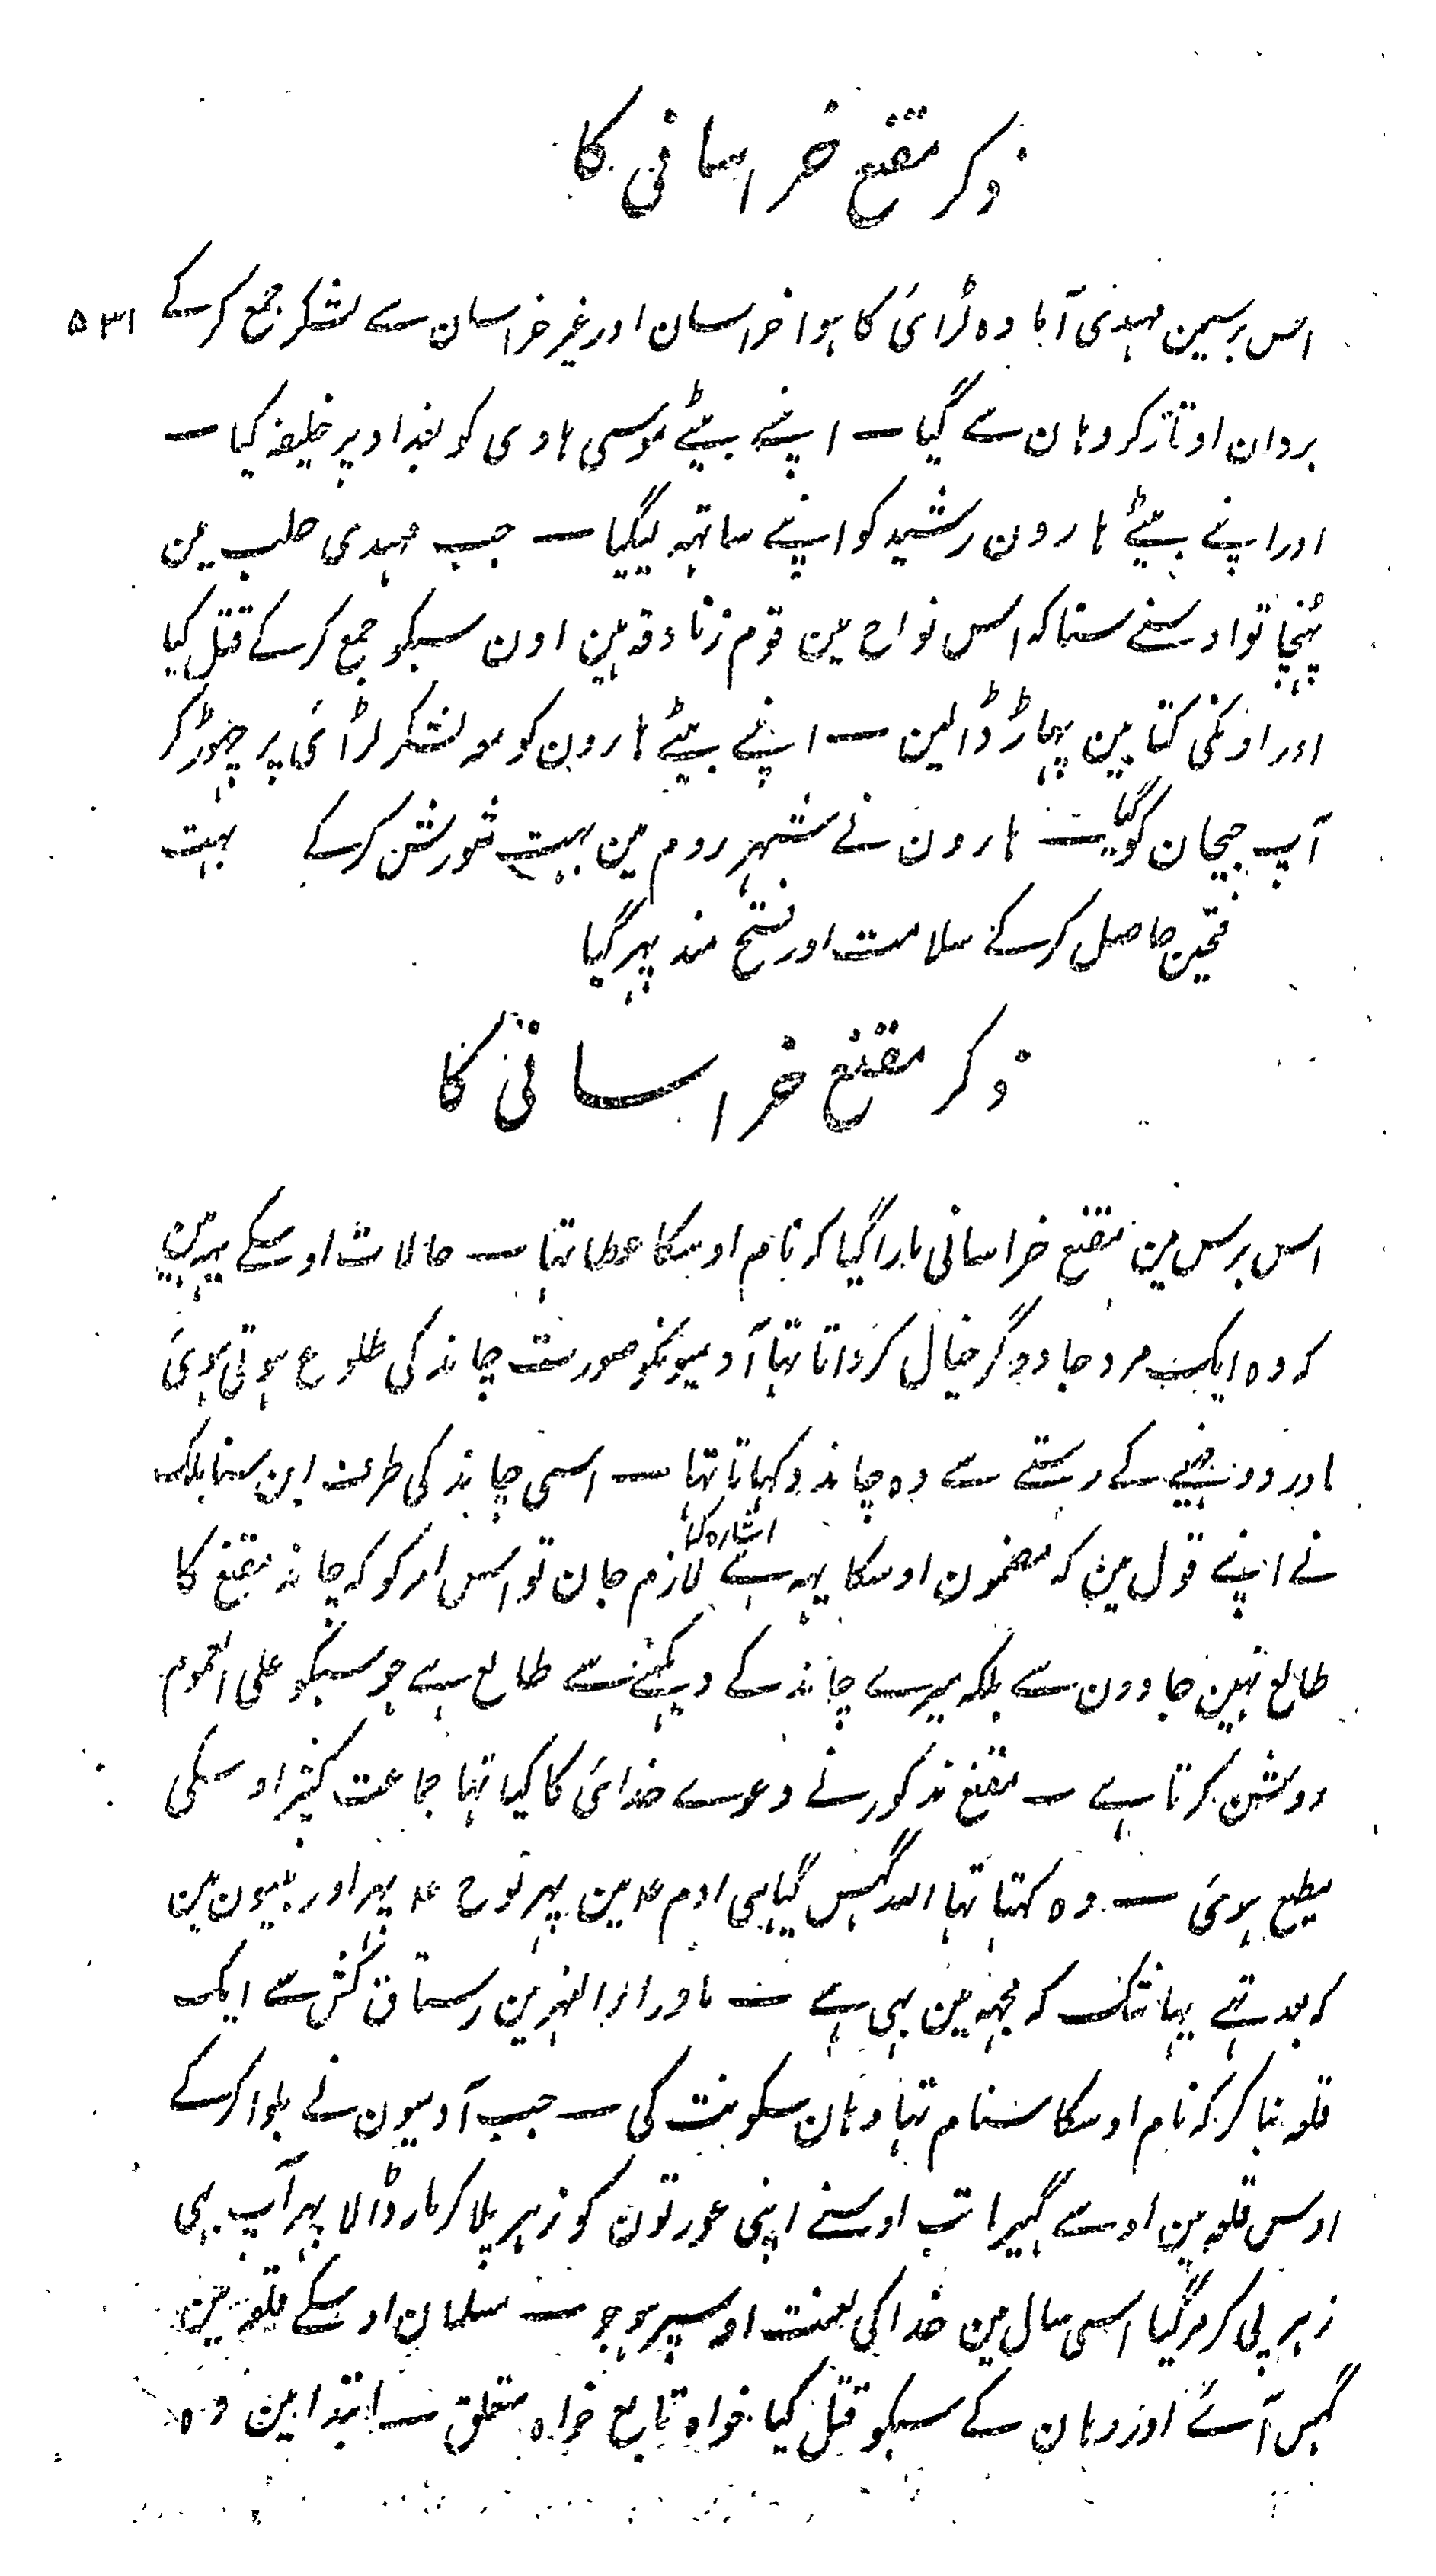 ذکر مقنع خراسانی کا
۵۳۱
اس برسمین مہدی آمادہ لڑائی کا ہوا خراسان اور غیر خراسان سے لشکر جمع کر کے
بردان اوتار کر وہان سے گیا ۔ اپنے بیٹے موسی ہادی کو بغداد پر خلیفہ کیا ۔
اور اپنے بیٹے ہارون رشید کو اپنے ساتہہ لیگیا ۔ جب مہدی حلب مین
پُنہچا تو اوسنے سنا کہ اس نواح مین قوم زنادقہ ہین اون سبکو جمع کر کے قتل کیا
اور اونکی کتابین پہاڑ ڈالین ۔ اپنے بیٹے ہارون کو معہ لشکر لڑائی پر چہوڑ کر
آپ جیحان کو گیا ۔ ہارون نے شہر روم مین بہت شورش کر کے بہت
فتحین حاصل کر کے سلامت اور فتح مند پہر گیا
ذکر مقنع خراسانی کا
اس برس مین مقنع خراسانی مارا گیا کہ نام اوسکا عطا تہا ۔ حالات اوسکے یہہ ہین
کہ وہ ایک مرد جادوگر خیال کرداتا تہا آدمیونکو صورت چاند کی طلوع ہوتی ہوئی
اور دو مہینے کے رستے سے وہ چاند دکہاتا تہا ۔ اسی چاند کی طرف ابن سنا بلک
نے اپنے قول مین کہ مضمون اوسکا یہہ ہے اشارہ کیا لازم جان تو اس امر کو کہ چاند مقنع کا
طالع نہین جادون سے بلکہ میرے چاند کے دیکہنے سے طالع ہے جو سبکو علی العموم
روشن کرتا ہے ۔ مقنع مذکور نے دعوے خدائی کا کیا تہا جماعت کثیر اوسکی
مطیع ہوئی ۔ وہ کہتا تہا اللہ گہس گیا ہی ادم ع مین پہر نوح ع پہر اور نبیون مین
کہ بعد تہے یہانتک کہ مجہہ مین بہی ہے ۔ ماوراء النہر مین رستاق کش سے ایک
قلعہ بنا کر کہ نام اوسکا سنام تہا وہان سکونت کی ۔ جب آدمیون نے بلوا کر کے
اوس قلعہ مین اوسے گہیرا تب اوسنے اپنی عورتون کو زہر پلا کر مار ڈالا پہر آپ بہی
زہر پی کر مر گیا اسی سال مین خدا کی لعنت اوسپر ہوجو ۔ مسلمان اوسکے قلعہ مین
گہس آئے اور وہان کے سبکو قتل کیا خواہ تابع خواہ متعلق ۔ ابتدا مین وہ